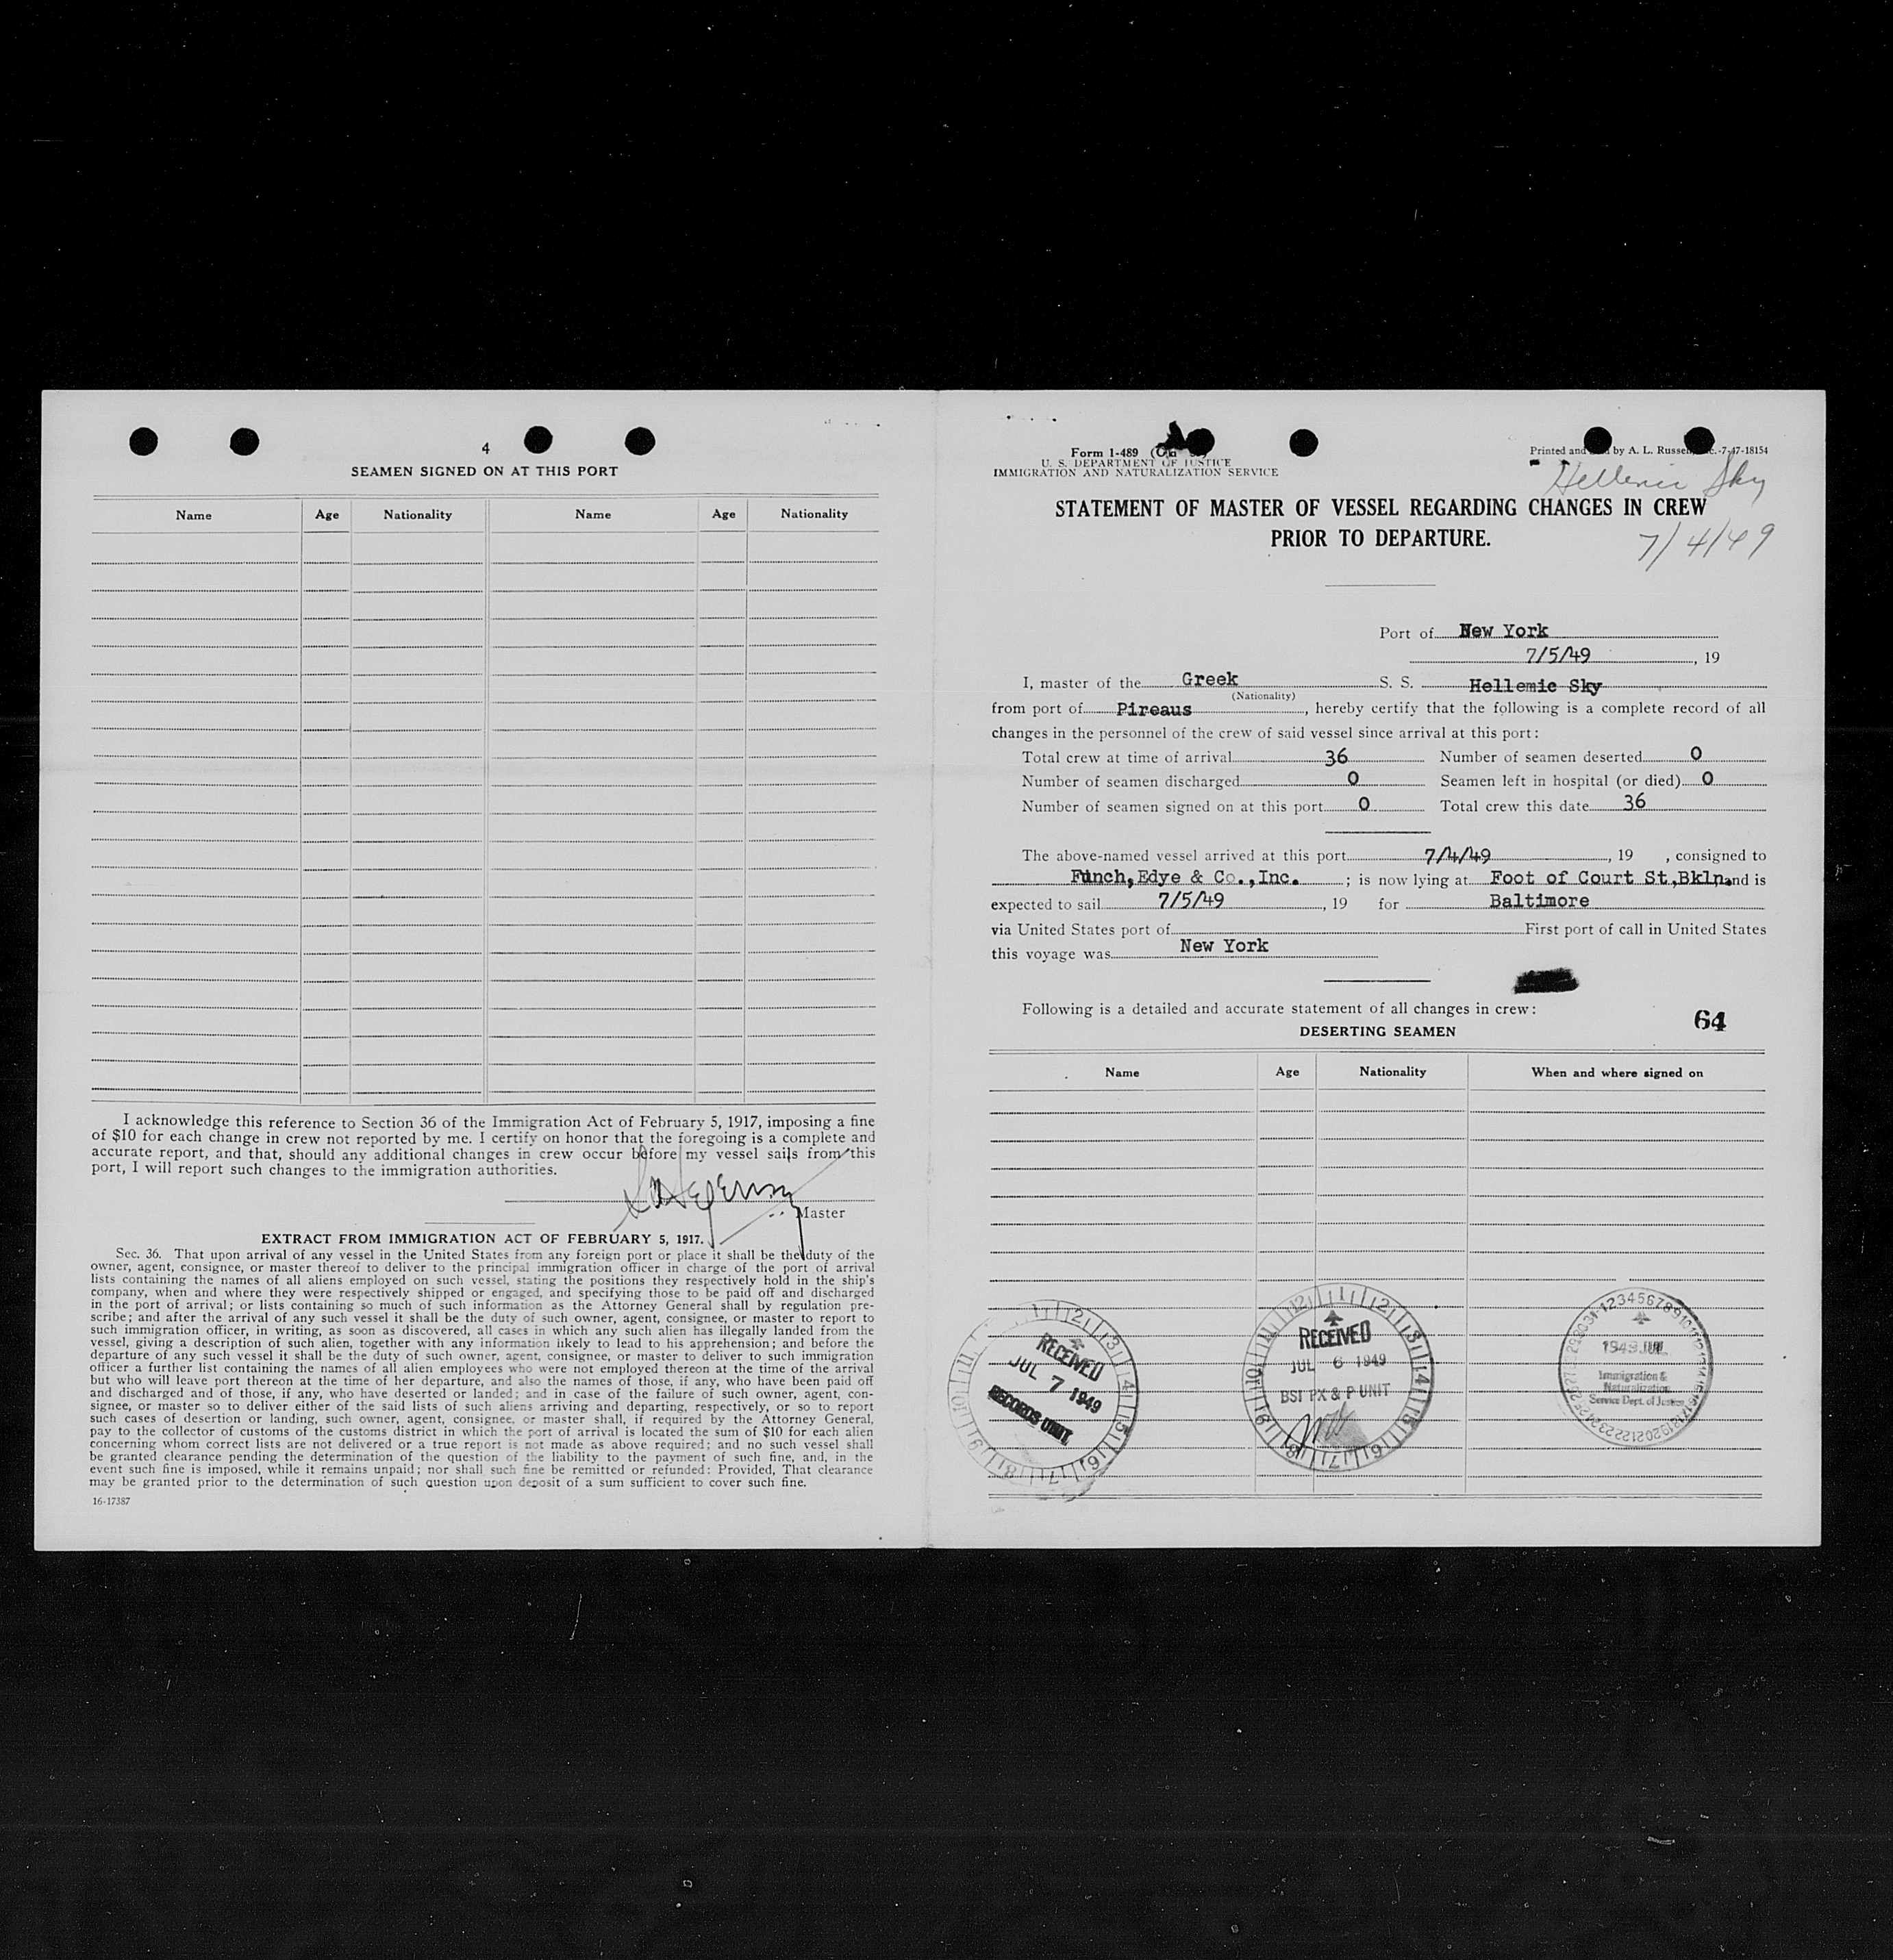 4
SEAMEN SIGNED ON AT THIS PORT
Name Age Nationality Name Age Nationality
I acknowledge this reference to Section 36 of the Immigration Act of February 5, 1917, imposing a fine
of $10 for each change in crew not reported by me. I certify on honor that the foregoing is a complete and
accurate report, and that, should any additional changes in crew occur before my vessel sails from this
port, I will report such changes to the immigration authorities.
Master
EXTRACT FROM IMMIGRATION ACT OF FEBRUARY 5, 1917.
Sec. 36. That upon arrival of any vessel in the United States from any foreign port or place it shall be the duty of the
owner, agent, consignee, or master thereof to deliver to the principal immigration officer in charge of the port of arrival
lists containing the names of all aliens employed on such vessel, stating the positions they respectively hold in the ship's
company, when and where they were respectively shipped or engaged, and specifying those to be paid off and discharged
in the port of arrival; or lists containing so much of such information as the Attorney General shall by regulation pre-
scribe; and after the arrival of any such vessel it shall be the duty of such owner, agent, consignee, or master to report to
such immigration officer, in writing, as soon as discovered, all cases in which any such alien has illegally landed from the
vessel, giving a description of such alien, together with any information likely to lead to his apprehension; and before the
departure of any such vessel it shall be the duty of such owner, agent, consignee, or master to deliver to such immigration
officer a further list containing the names of all alien employees who were not employed thereon at the time of the arrival
but who will leave port thereon at the time of her departure, and also the names of those, if any, who have been paid off
and discharged and of those, if any, who have deserted or landed; and in case of the failure of such owner, agent, con-
signee, or master so to deliver either of the said lists of such aliens arriving and departing, respectively, or so to report
such cases of desertion or landing, such owner, agent, consignee, or master shall, if required by the Attorney General,
pay to the collector of customs of the customs district in which the port of arrival is located the sum of $10 for each alien
concerning whom correct lists are not delivered or a true report is not made as above required; and no such vessel shall
be granted clearance pending the determination of the question of the liability to the payment of such fine, and, in the
event such fine is imposed, while it remains unpaid; nor shall such fine be remitted or refunded: Provided, That clearance
may be granted prior to the determination of such question upon deposit of a sum sufficient to cover such fine.
16-17387
Form 1-489
U. S. DEPARTMENT OF JUSTICE
IMMIGRATION AND NATURALIZATION SERVICE
Printed and by A. L. -7-47-18154
Hellenic Sky
STATEMENT OF MASTER OF VESSEL REGARDING CHANGES IN CREW
PRIOR TO DEPARTURE.
7/4/49
Port of New York
7/5/49, 19
I, master of the Greek S. S. Hellemic Sky
(Nationality)
from port of Pireaus, hereby certify that the following is a complete record of all
changes in the personnel of the crew of said vessel since arrival at this port:
Total crew at time of arrival 36 Number of seamen deserted 0
Number of seamen discharged 0 Seamen left in hospital (or died) 0
Number of seamen signed on at this port 0 Total crew this date 36
The above-named vessel arrived at this port 7/4/49, 19 , consigned to
Funch, Edye & Co., Inc. ; is now lying at Foot of Court St, Bkln. and is
expected to sail 7/5/49, 19 for Baltimore
via United States port of First port of call in United States
this voyage was New York
Following is a detailed and accurate statement of all changes in crew:
64
DESERTING SEAMEN
Name Age Nationality When and where signed on
RECEIVED
JUL 7 1949
RECORDS UNIT
RECEIVED
JUL 6 1949
BSI PX & P UNIT
1949 JUL
Immigration &
Naturalization
Service Dept. of Justice